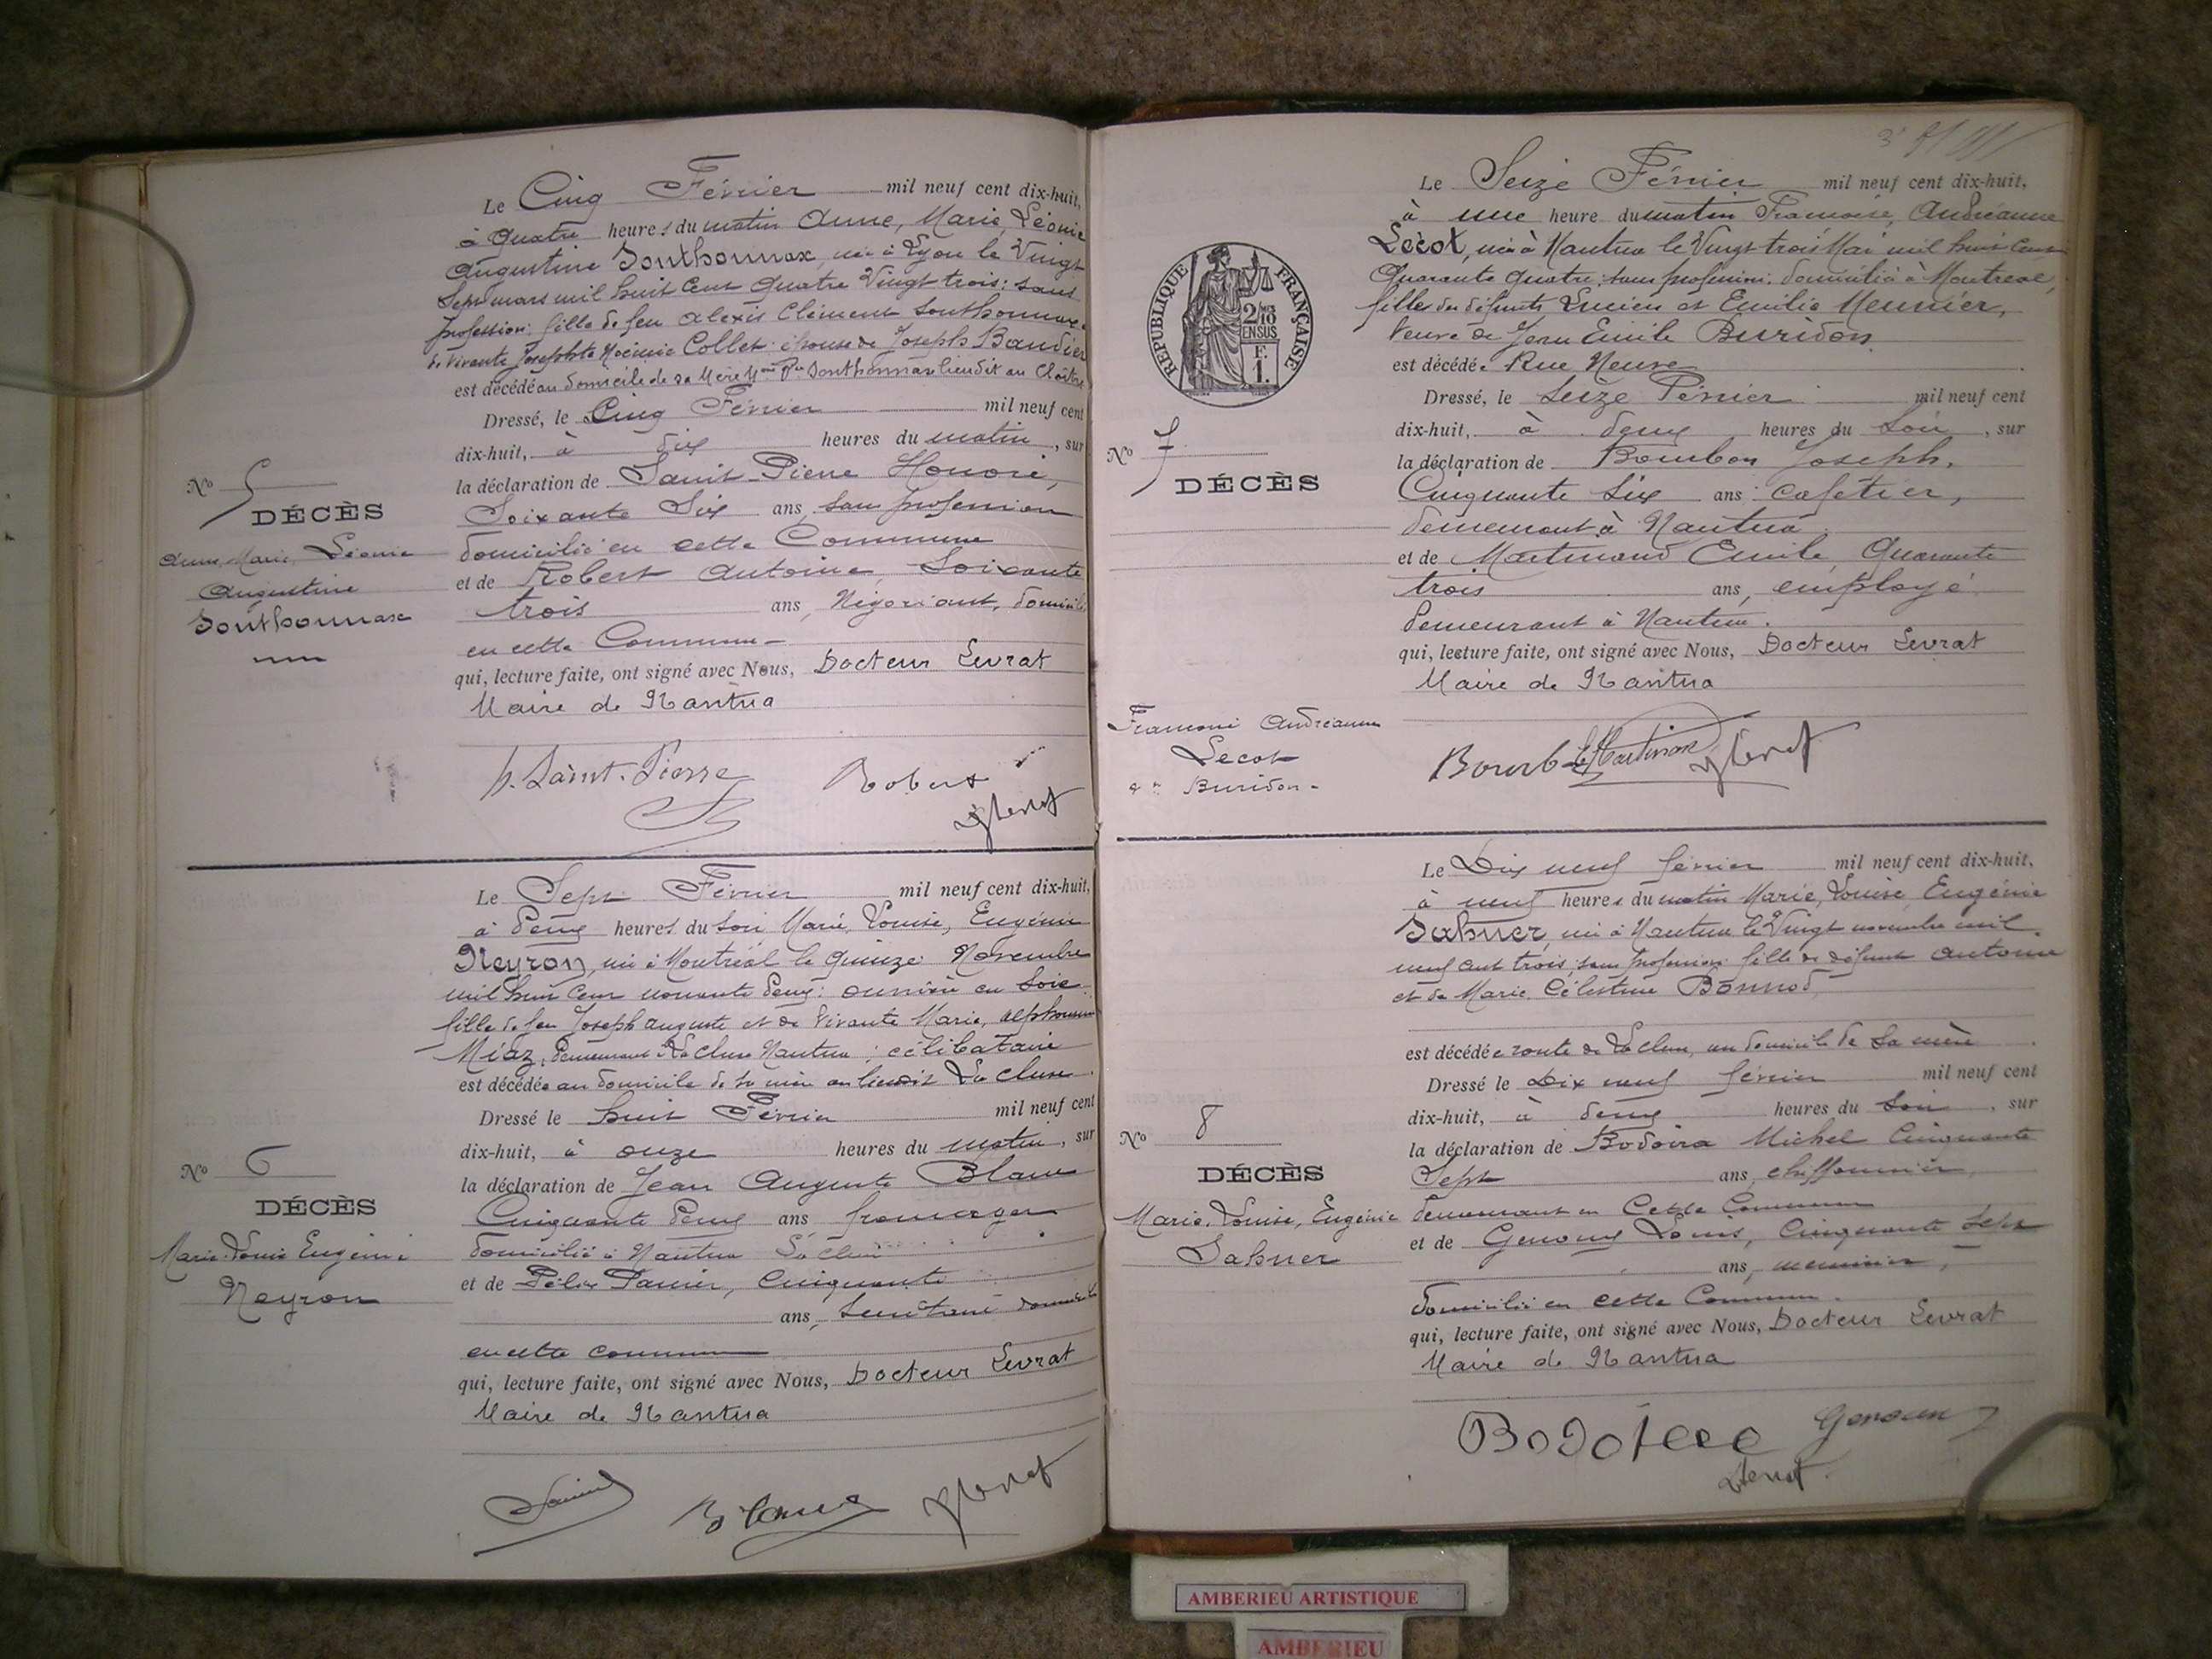 Le Cinq Février mil neuf cent dix-huit,
à quatre heures du matin Anne, Marie, Léonie
Augustine Southonnax, née à Lyon le Vingt
Sept mars mil huit cent quatre Vingt trois: sans
profession: fille de feu Alexis Clément Southonnax
de vivante Josephte Noémie Collet: épouse de Joseph Baudier
est décédé au domicile de sa Mère Mme Vve Southonnax lieu dit au Cloître
Dressé, le Cinq Février mil neuf cent
dix-huit, à dix heures du matin, sur
la déclaration de Saint-Pierre Honoré,
Soixante Six ans, sans profession
domicilié en cette Commune
et de Robert Antoine, Soixante
trois ans, Négociant, domicilié
en cette Commune-
qui, lecture faite, ont signé avec Nous, Docteur Levrat
Maire de Nantua
h. Saint-Pierre Robert
No 5
DÉCÈS
Anne, Marie, Léonie
Augustine
Southonnax
Le Sept Février mil neuf cent dix-huit,
à deux heures du soir Marie, Louise, Eugénie
Neyron, née à Montréal le quinze Novembre
mil huit cent nonante deux: ouvrière en soie
fille de feu Joseph Auguste et de vivante Marie, Alphonsine
Miaz, demeurant à La Cluse Nantua: célibataire
est décédée au domicile de sa mère au lieu dit La Cluse
Dressé le huit Février mil neuf cent
dix-huit, à onze heures du matin, sur
la déclaration de Jean Auguste Blanc
Cinquante deux ans fromager
domicilié à Nantua La Cluse
et de Félix Panier, Cinquante
ans, Secrétaire domicilié
en cette commune
qui, lecture faite, ont signé avec Nous, Docteur Levrat
Maire de Nantua
Blanc
No 6
DÉCÈS
Marie Louise Eugénie
Neyron
Le Seize Février mil neuf cent dix-huit,
à une heure du matin Françoise, Andréanne
Lecot, née à Nantua le Vingt trois Mai mil huit cent
Quarante quatre; sans profession: domiciliée à Montréal,
fille des défunts Lucien et Emilie Meunier,
Veuve de Jean Emile Buridon
est décédée Rue Neuve
Dressé, le Seize Février mil neuf cent
dix-huit, à deux heures du soir, sur
la déclaration de Bourbon Joseph,
Cinquante six ans: cafetier,
demeurant à Nantua
et de Martinand Emile, Quarante
trois ans, employé
demeurant à Nantua.
qui, lecture faite, ont signé avec Nous, Docteur Levrat
Maire de Nantua
RÉPUBLIQUE FRANÇAISE
2/10 EN SUS
F. 1.
No 7
DÉCÈS
Françoise Andréanne
Lecot
Buridon-
Le Dix neuf février mil neuf cent dix-huit,
à neuf heures du matin Marie, Louise, Eugénie
Sahner, née à Nantua le Vingt novembre mil
neuf cent trois; sans profession: fille de défunt Antoine
et de Marie Célestine Bonnod,
est décédée route de La Cluse, au domicile de sa mère
Dressé le Dix neuf février mil neuf cent
dix-huit, à deux heures du soir, sur
la déclaration de Bodoira Michel Cinquante
Sept ans, chiffonnier,
demeurant en Cette Commune
et de Genoux Louis, Cinquante sept
ans, menuisier,
domicilié en cette Commune.
qui, lecture faite, ont signé avec Nous, Docteur Levrat
Maire de Nantua
Genoux
No 8
DÉCÈS
Marie, Louise, Eugénie
Sahner
AMBERIEU ARTISTIQUE
AMBERIEU